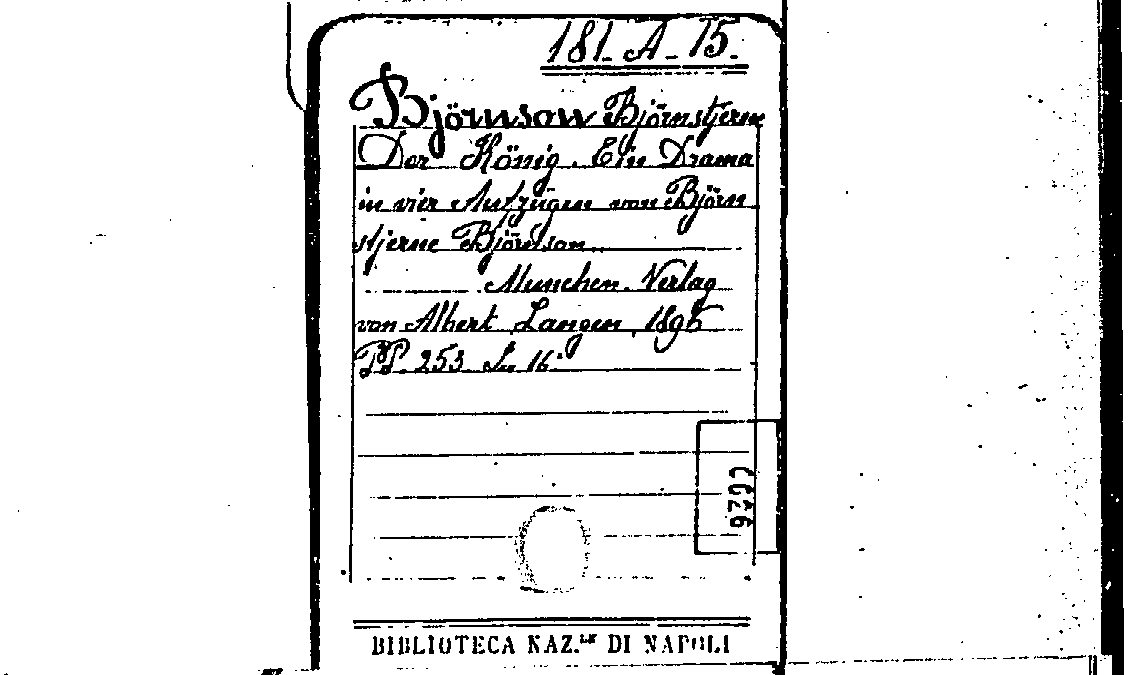 181. A. 15.
Björnson Björnstjerne
Der König. Ein Drama
in vier Aufzügen von Björn
stjerne Björnson
München. Verlag
von Albert Langen, 1896
PP. 253 in 16°
0026
BIBLIOTECA NAZ.LE DI NAPOLI